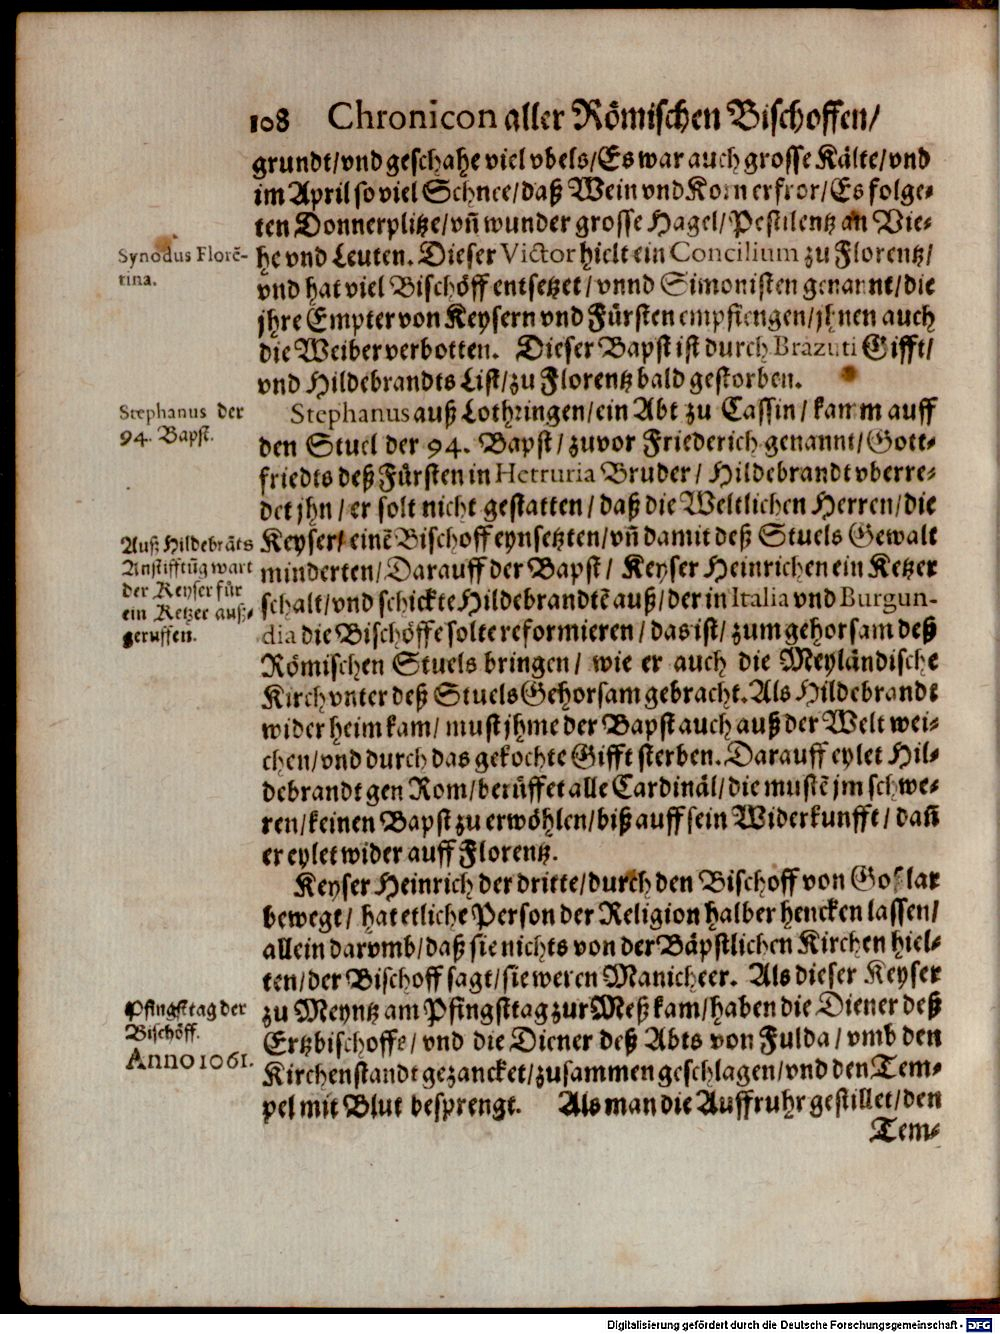 108 Chronicon aller Römischen Bischoffen/
grundt/vnd geschahe viel vbels/Es war auch grosse Kälte/vnd
im April so viel Schnee/daß Wein vnd Korn erfror/Es folge-
ten Donnerplitze/vñ wunder grosse Hagel/Pestilentz an Vie-
Synodus Florẽ-
tina.
he vnd Leuten. Dieser Victor hielt ein Concilium zu Florentz/
vnd hat viel Bischöff entsetzet/vnnd Simonisten genannt/die
jhre Empter von Keysern vnd Fürsten empfiengen/jhnen auch
die Weiber verbotten. Dieser Bapst ist durch Brazuti Gifft/
vnd Hildebrandts List/zu Florentz bald gestorben.
Stephanus der
94. Bapst.
Stephanus auß Lothringen/ein Abt zu Cassin/kam m auff
den Stuel der 94. Bapst/zuvor Friederich genannt/Gott-
friedts deß Fürsten in Hetruria Bruder/Hildebrandt vberre-
det jhn/er solt nicht gestatten/daß die Weltlichen Herren/die
Auß Hildebrãts
Anstifftũg wart
der Keyser für
ein Ketzer auß-
geruffen.
Keyser/einẽ Bischoff eynsetzten/vñ damit deß Stuels Gewalt
minderten/Darauff der Bapst/Keyser Heinrichen ein Ketzer
schalt/vnd schickte Hildebrandtẽ auß/der in Italia vnd Burgun-
dia die Bischöffe solte reformieren/das ist/zum gehorsam deß
Römischen Stuels bringen/wie er auch die Meyländische
Kirch vnter deß Stuels Gehorsam gebracht. Als Hildebrandt
wider heim kam/must jhme der Bapst auch auß der Welt wei-
chen/vnd durch das gekochte Gifft sterben. Darauff eylet Hil-
debrandt gen Rom/berüffet alle Cardinäl/die mustẽ jm schwe-
ren/keinen Bapst zu erwöhlen/biß auff sein Widerkunfft/dañ
er eylet wider auff Florentz.
Keyser Heinrich der dritte/durch den Bischoff von Goslar
bewegt/hat etliche Person der Religion halber hencken lassen/
allein darvmb/daß sie nichts von der Bäpstlichen Kirchen hiel-
ten/der Bischoff sagt/sie weren Manicheer. Als dieser Keyser
Pfingsttag der
Bischöff.
Anno 1061.
zu Meyntz am Pfingsttag zur Meß kam/haben die Diener deß
Ertzbischoffs/vnd die Diener deß Abts von Fulda/vmb den
Kirchenstandt gezancket/zusammen geschlagen/vnd den Tem-
pel mit Blut besprengt. Als man die Auffruhr gestillet/den
Tem-
Digitalisierung gefördert durch die Deutsche Forschungsgemeinschaft - DFG